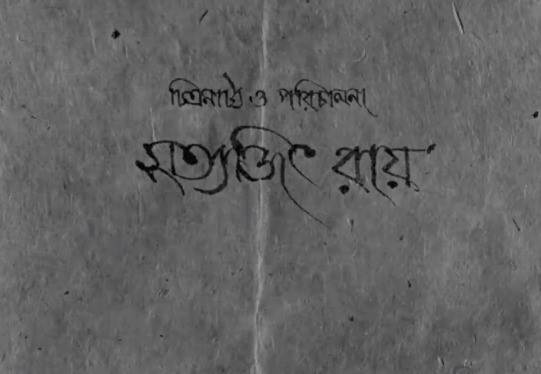 চিত্রনাট্য ও পরিচালনা
সত্যজিৎ রায়